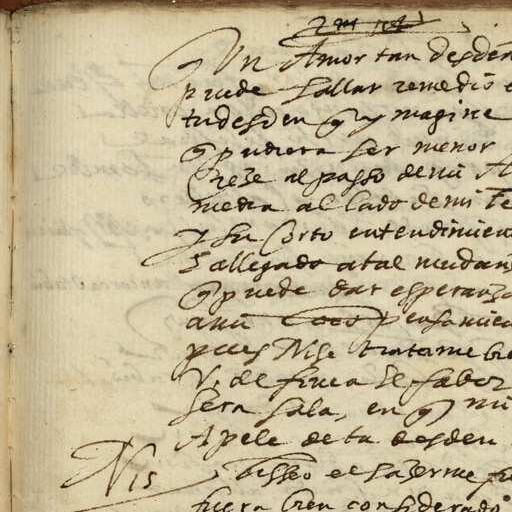 Un Amor tan desden
puede hallar remedio
tu desden q ymagine
q pudiera ser menor
Creze al passo de mi A
media al lado de mi Te
y su corto entendimien
a allegado a tal mudan
q puede dar esperanza
a mi loco pensamien
pues Nise tratame bie
V. de finea el fabor
sera sala, en q mi
Apele de tu desden
Nis
fuera bien considerado